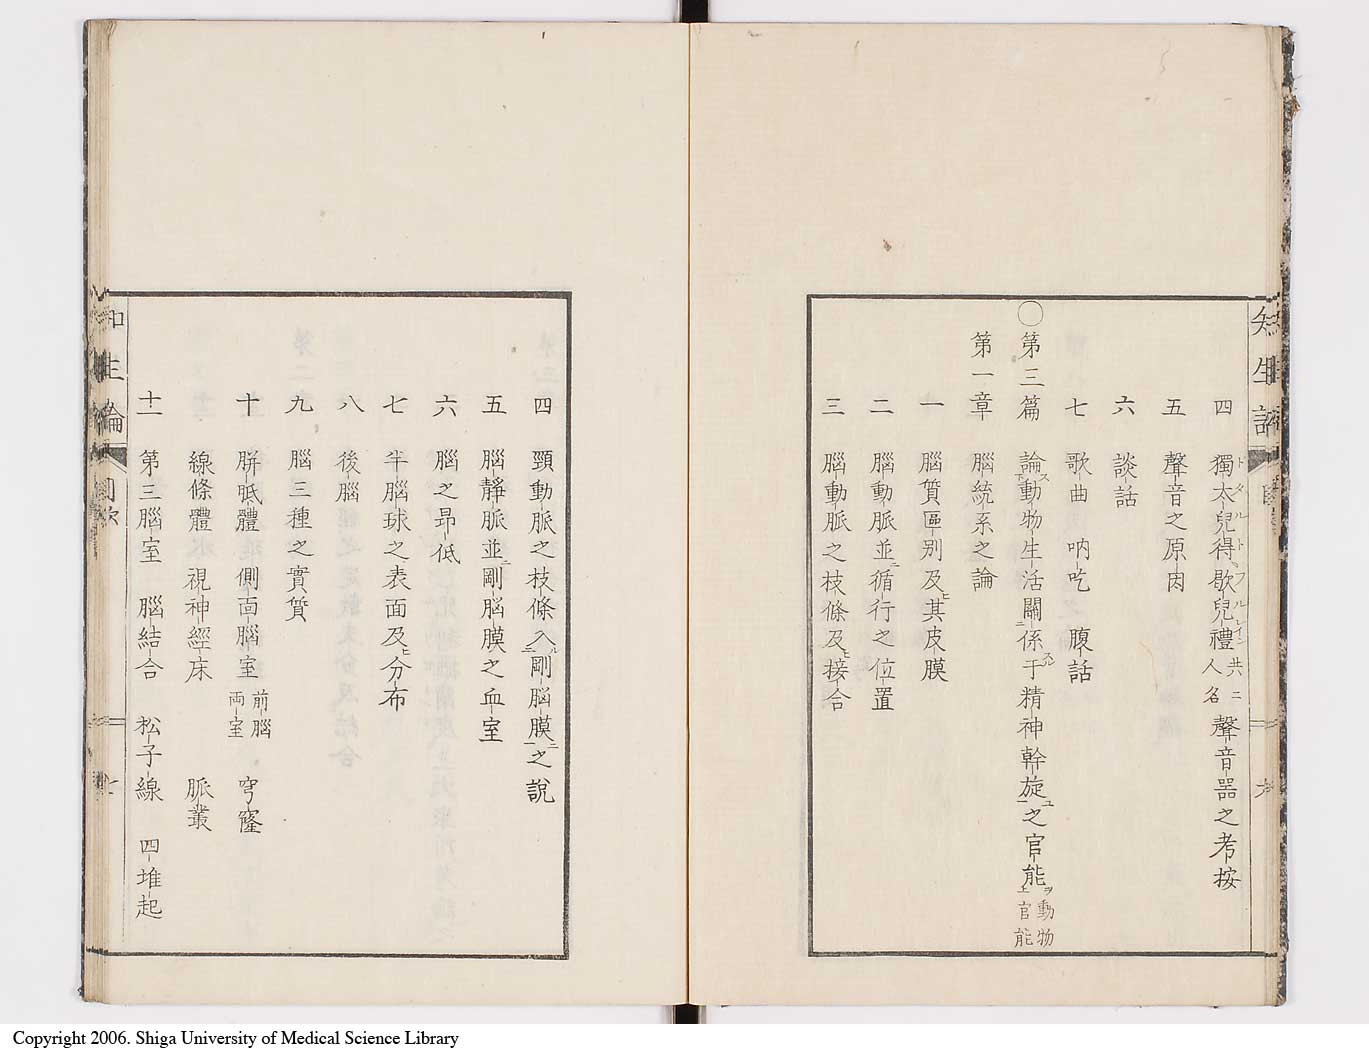 四 獨太兒得、歇兒禮共ニ人名聲音器之考按
五 聲音之原因
六 談話
七 歌曲 吶吃 腹話
○第三篇 論動物生活關係于精神幹旋之官能動物官能
第一章 腦統系之論
一 腦質區别及其皮膜
二 腦動脈並循行之位置
三 腦動脈之枝條及接合
四 頸動脈之枝條入剛腦膜之說
五 腦靜脈並剛腦膜之血室
六 腦之昻低
七 半腦球之表面及分布
八 後腦
九 腦三種之實質
十 胼胝體 側面腦室前腦両室 穹窿
線條體 視神經床 脈叢
十一 第三腦室 腦結合 松子線 四堆起
知生論 目次 七
Copyright 2006. Shiga University of Medical Science Library